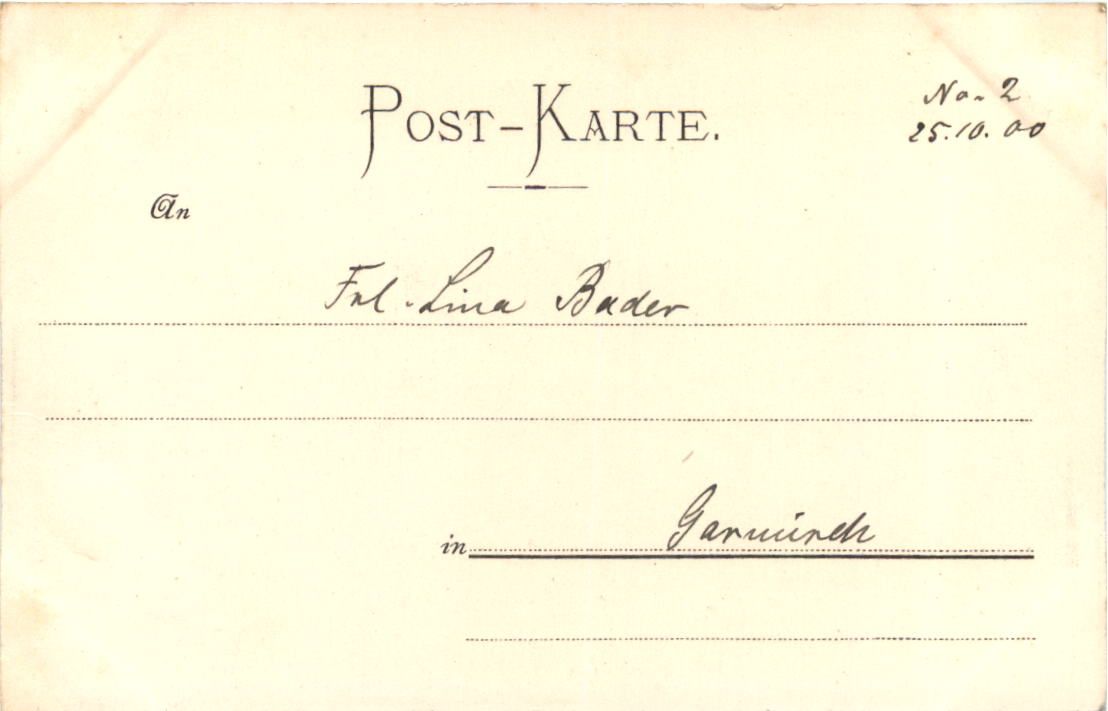 POST-KARTE.
No. 2
25.10.00
An
Frl. Lina Bader
in Garmisch